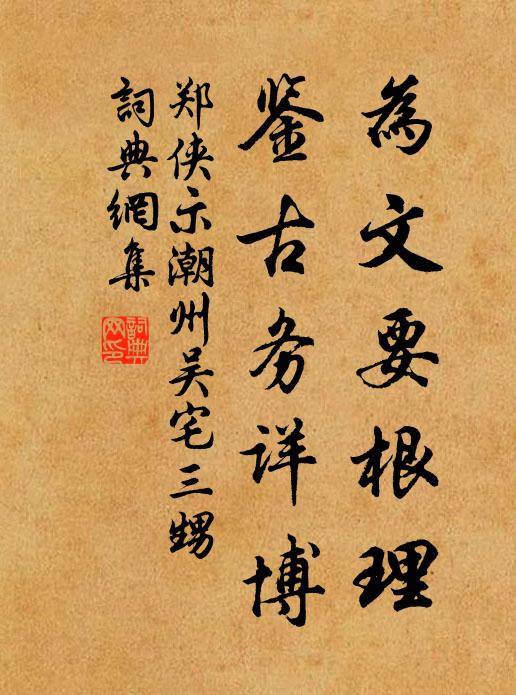 為文要根理
鉴古务详博
郑侠示潮州吴宅三甥
詞典網集
詞典网印